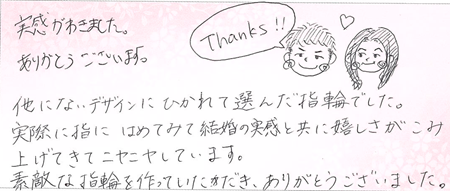 実感がわきました。
ありがとうございます。
Thanks!!
他にないデザインにひかれて選んだ指輪でした。
実際に指にはめてみて結婚の実感と共に嬉しさがこみ
上げてきてニヤニヤしています。
素敵な指輪を作っていただき、ありがとうございました。